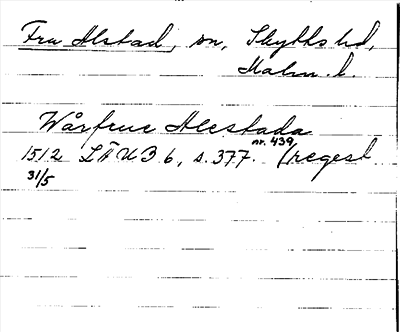 Fru Alstad, sn, Skytts hd,
Malm. l.
Wårfrue Alestada
1512 LÄUB 6, s. 377. nr. 439 (regest
31/5